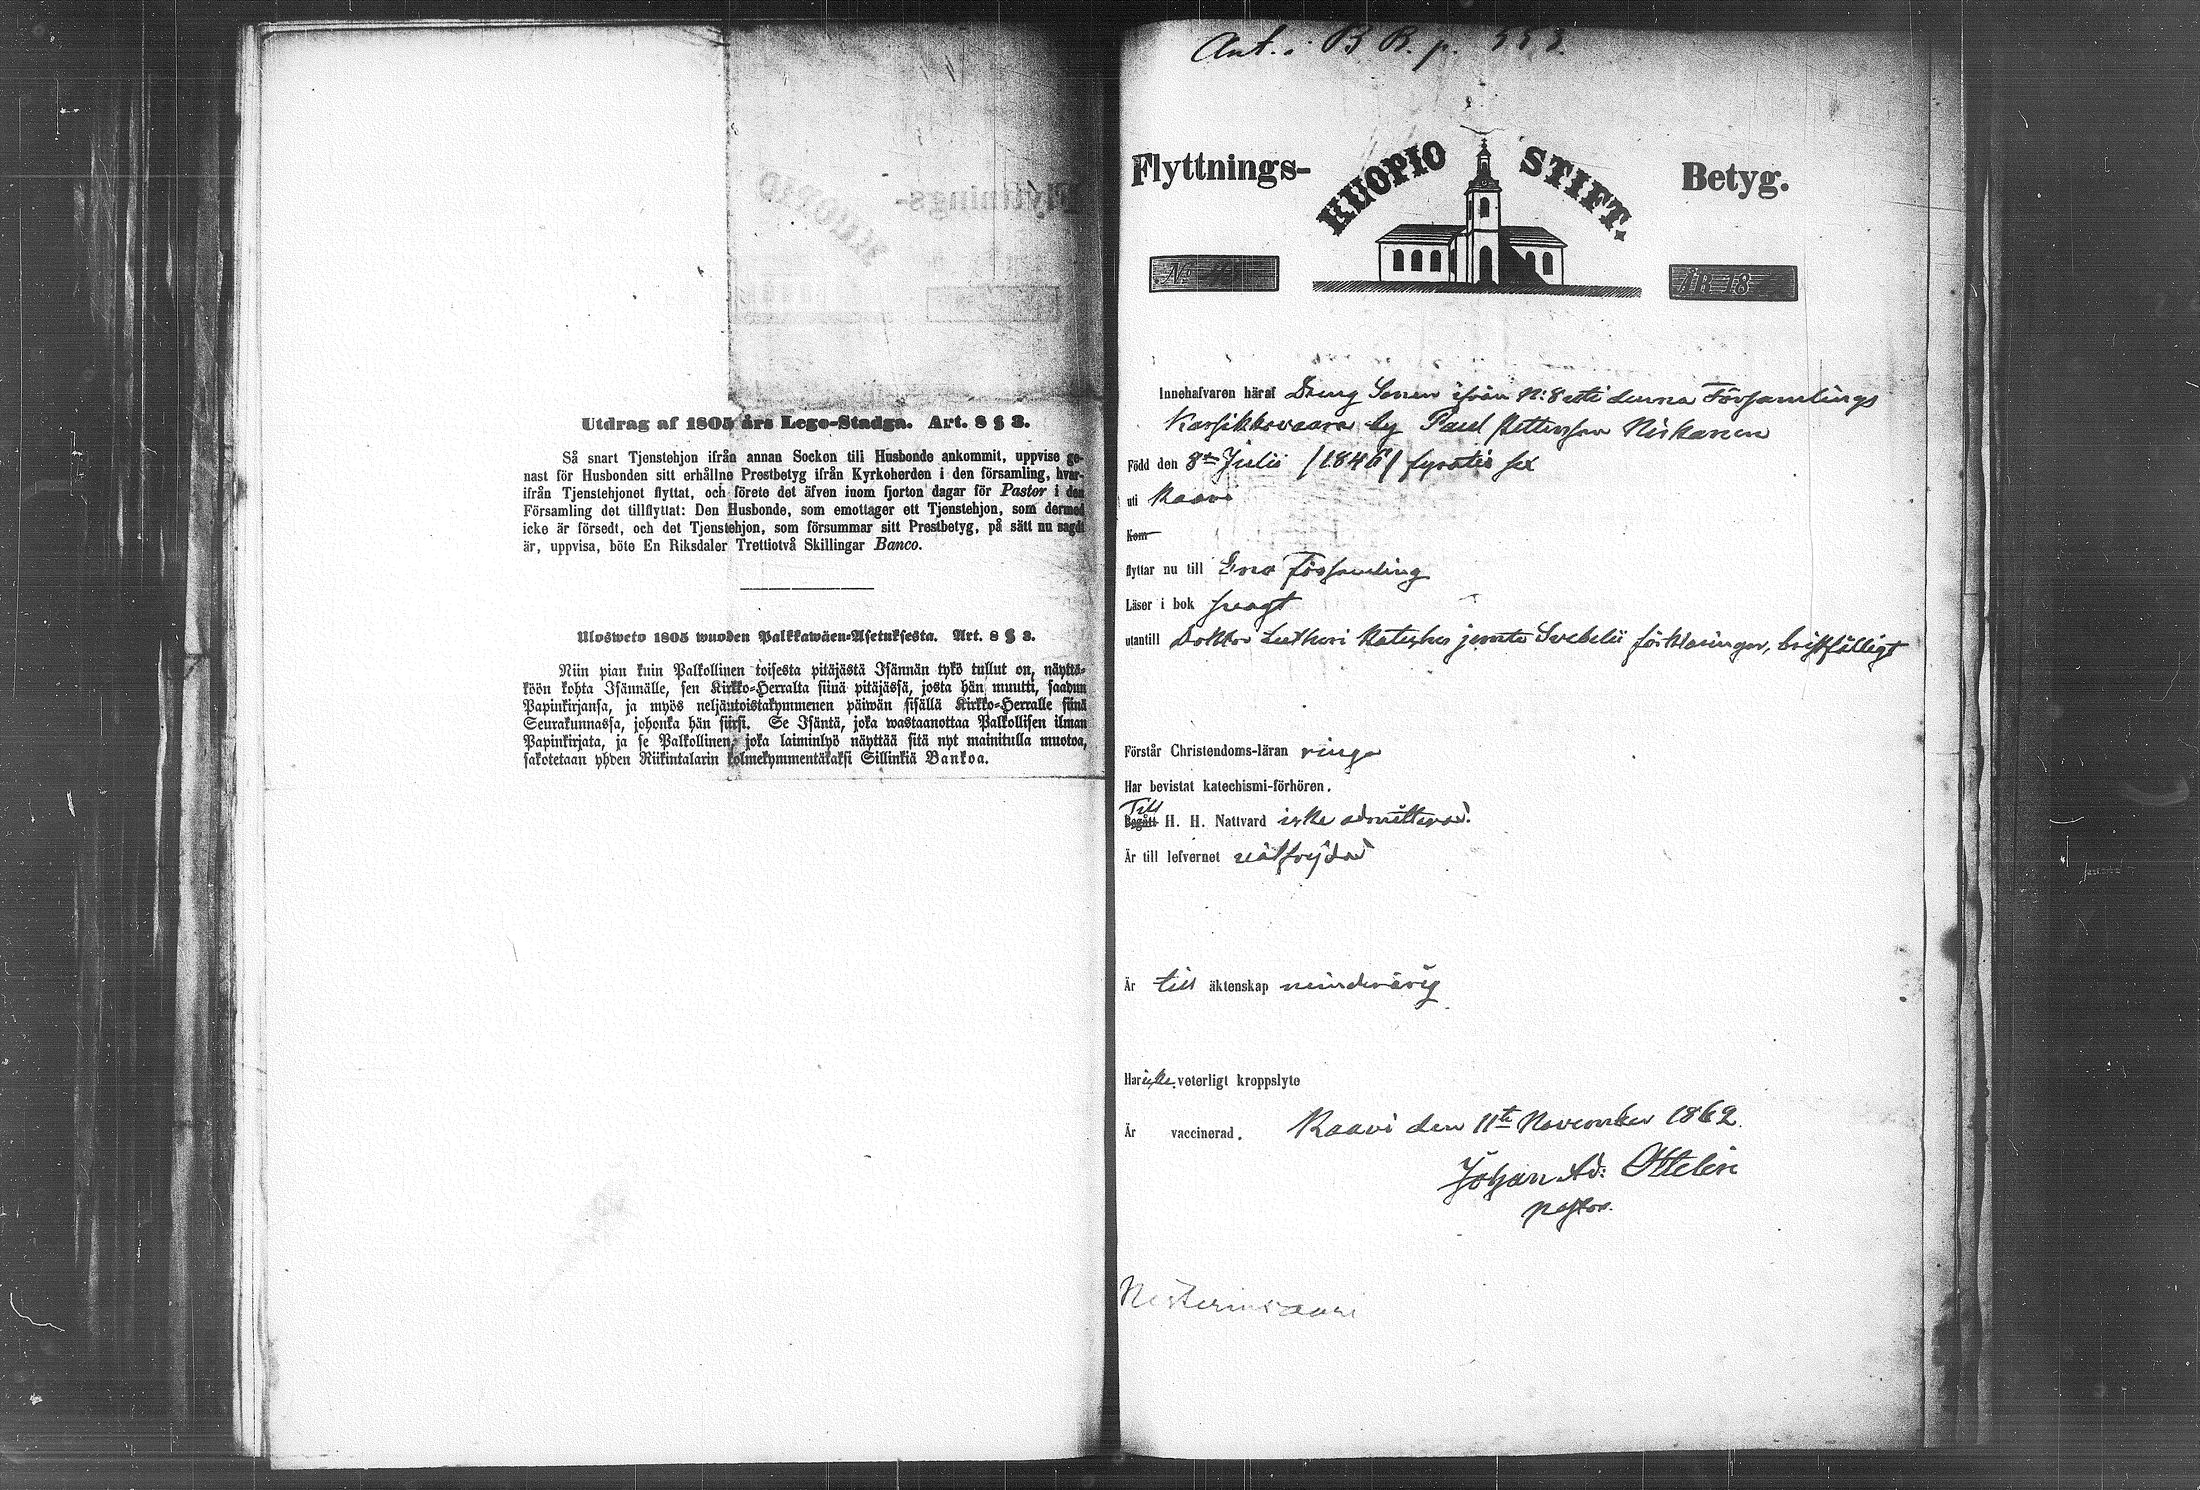 Utdrag af 1805 års Lego-Stadga. Art. 8 § 3.
Så snart Tjenstehjon ifrån annan Socken till Husbonde ankommit, uppvise ge-
nast för Husbonden sitt erhållne Prestbetyg ifrån Kyrkoherden i den församling, hvar-
ifrån Tjenstehjonet flyttat, och förete det äfven inom fjorton dagar för Pastor i den
Församling det tillflyttat: Den Husbonde, som emottager ett Tjenstehjon, som dermed
icke är försedt, och det Tjenstehjon, som försummar sitt Prestbetyg, på sätt nu sagdt
är, uppvisa, böte En Riksdaler Trettiotvå Skillingar Banco.
Ulosweto 1805 wuoden Palkkawäen-Asetuksesta. Art. 8 § 3.
Niin pian kuin Palkollinen toisesta pitäjästä Isännän tykö tullut on, näyttä-
köön kohta Isännälle, sen Kirkko-Herralta siinä pitäjässä, josta hän muutti, saadun
Papinkirjansa, ja myös neljäntoistakymmenen päiwän sisällä Kirkko-Herralle siinä
Seurakunnassa, johonka hän siirsi. Se Isäntä, joka wastaanottaa Palkollisen ilman
Papinkirjata, ja se Palkollinen, joka laiminlyö näyttää sitä nyt mainitulla muotoa,
sakotetaan yhden Riikintalarin kolmekymmentäkaksi Sillinkiä Bankoa.
Ant. i B B. p. 553.
Flyttnings- KUOPIO STIFT. Betyg.
N:o ÅR 18
Innehafvaren häraf Dreng Sonen ifrån N:8 uti denna Församlings
Karsikkovaara by Paul Pettersson Niskanen
Född den 8de Julii /1846/ fyratio sex
uti Kaavi
Kom
flyttar nu till Eno församling
Läser i bok svagt
utantill Doktor Lutheri Kateches jemte Svebelii förklaringar, bristfälligt
Förstår Christendoms-läran ringa
Har bevistat katechismi-förhören.
Till
Begått H. H. Nattvard icke admitterad.
Är till lefvernet välfrejdad
Är till äktenskap minderårig
Har icke veterligt kroppslyte
Är vaccinerad. Kaavi den 11te November 1862.
Johan Ad: Ottelin
pastor.